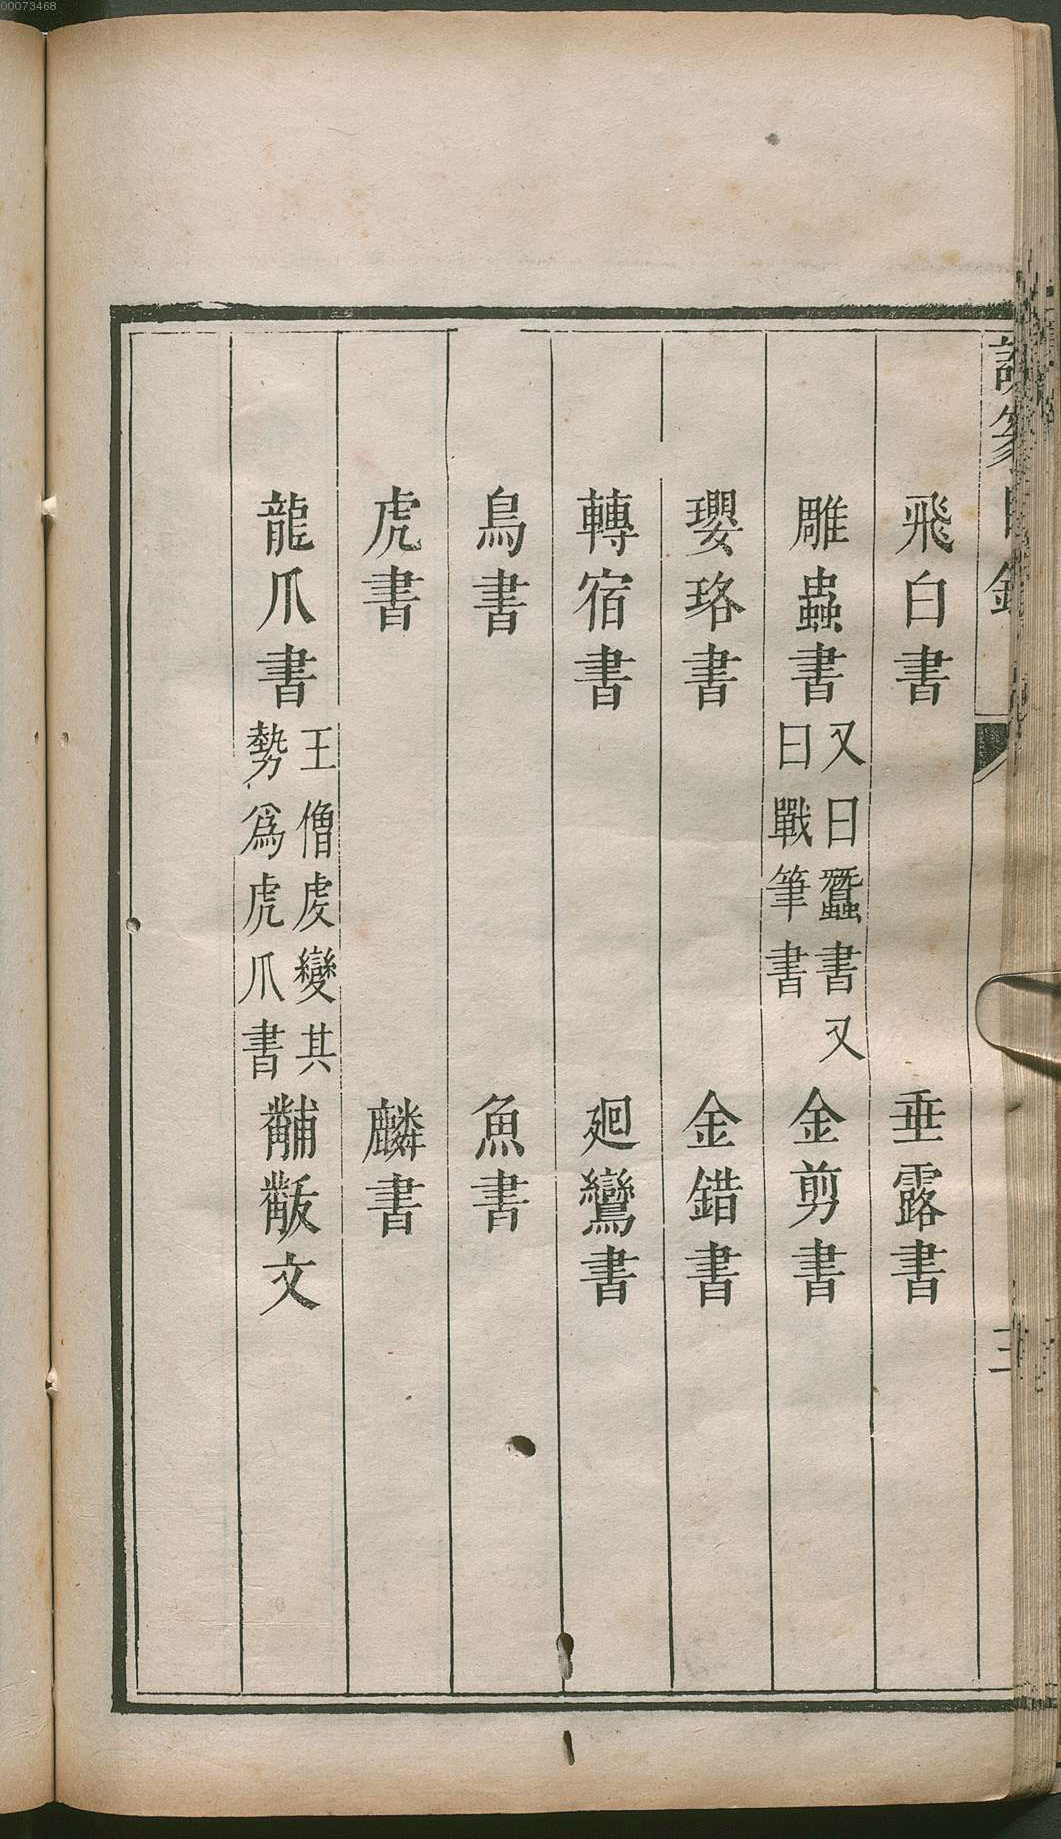 00073468
飛白書 垂露書
雕蟲書 又曰蠶書又曰戰筆書 金剪書
瓔珞書 金錯書
轉宿書 廻鸞書
鳥書 魚書
虎書 麟書
龍爪書 王僧虔變其勢爲虎爪書 黼黻文